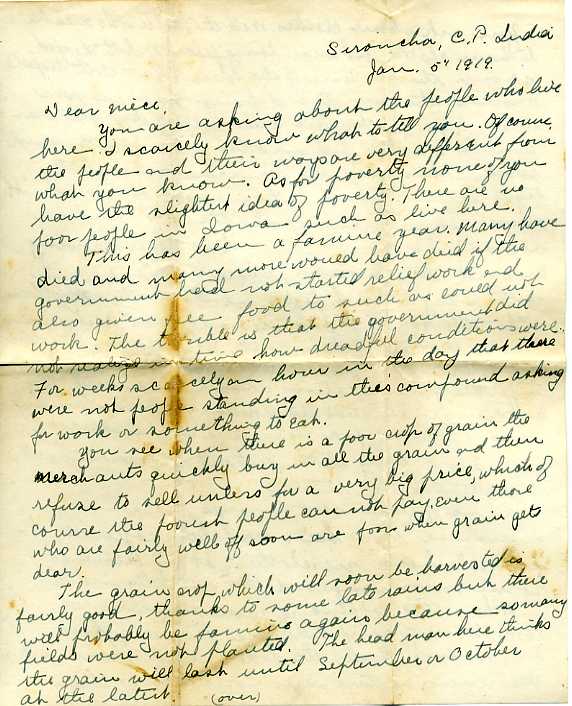 Sironcha, C. P. India
Jan. 5" 1919.
Dear niece,
You are asking about the people who live
here. I scarcely know what to tell you. Of course
the people and their ways are very different from
what you know. As for poverty none of you
have the slightest idea of poverty. There are no
poor people in Iowa such as live here.
This has been a famine year. Many have
died and many more would have died if the
government had not started relief work and
also given free food to such as could not
work. The trouble is that the government did
not realize in time how dreadful conditions were.
For weeks scarcely an hour in the day that there
were not people standing in this compound asking
for work or something to eat.
You see when there is a poor crop of grain the
merchants quickly buy in all the grain and then
refuse to sell unless for a very big price, which of
course the poorish people can not pay. Even those
who are fairly well off soon are poor when grain gets
dear.
The grain crop which will soon be harvested is
fairly good, thanks to some late rains but there
will probably be famine again because so many
fields were not planted. The head man here thinks
the grain will last until September or October
at the latest. (over)